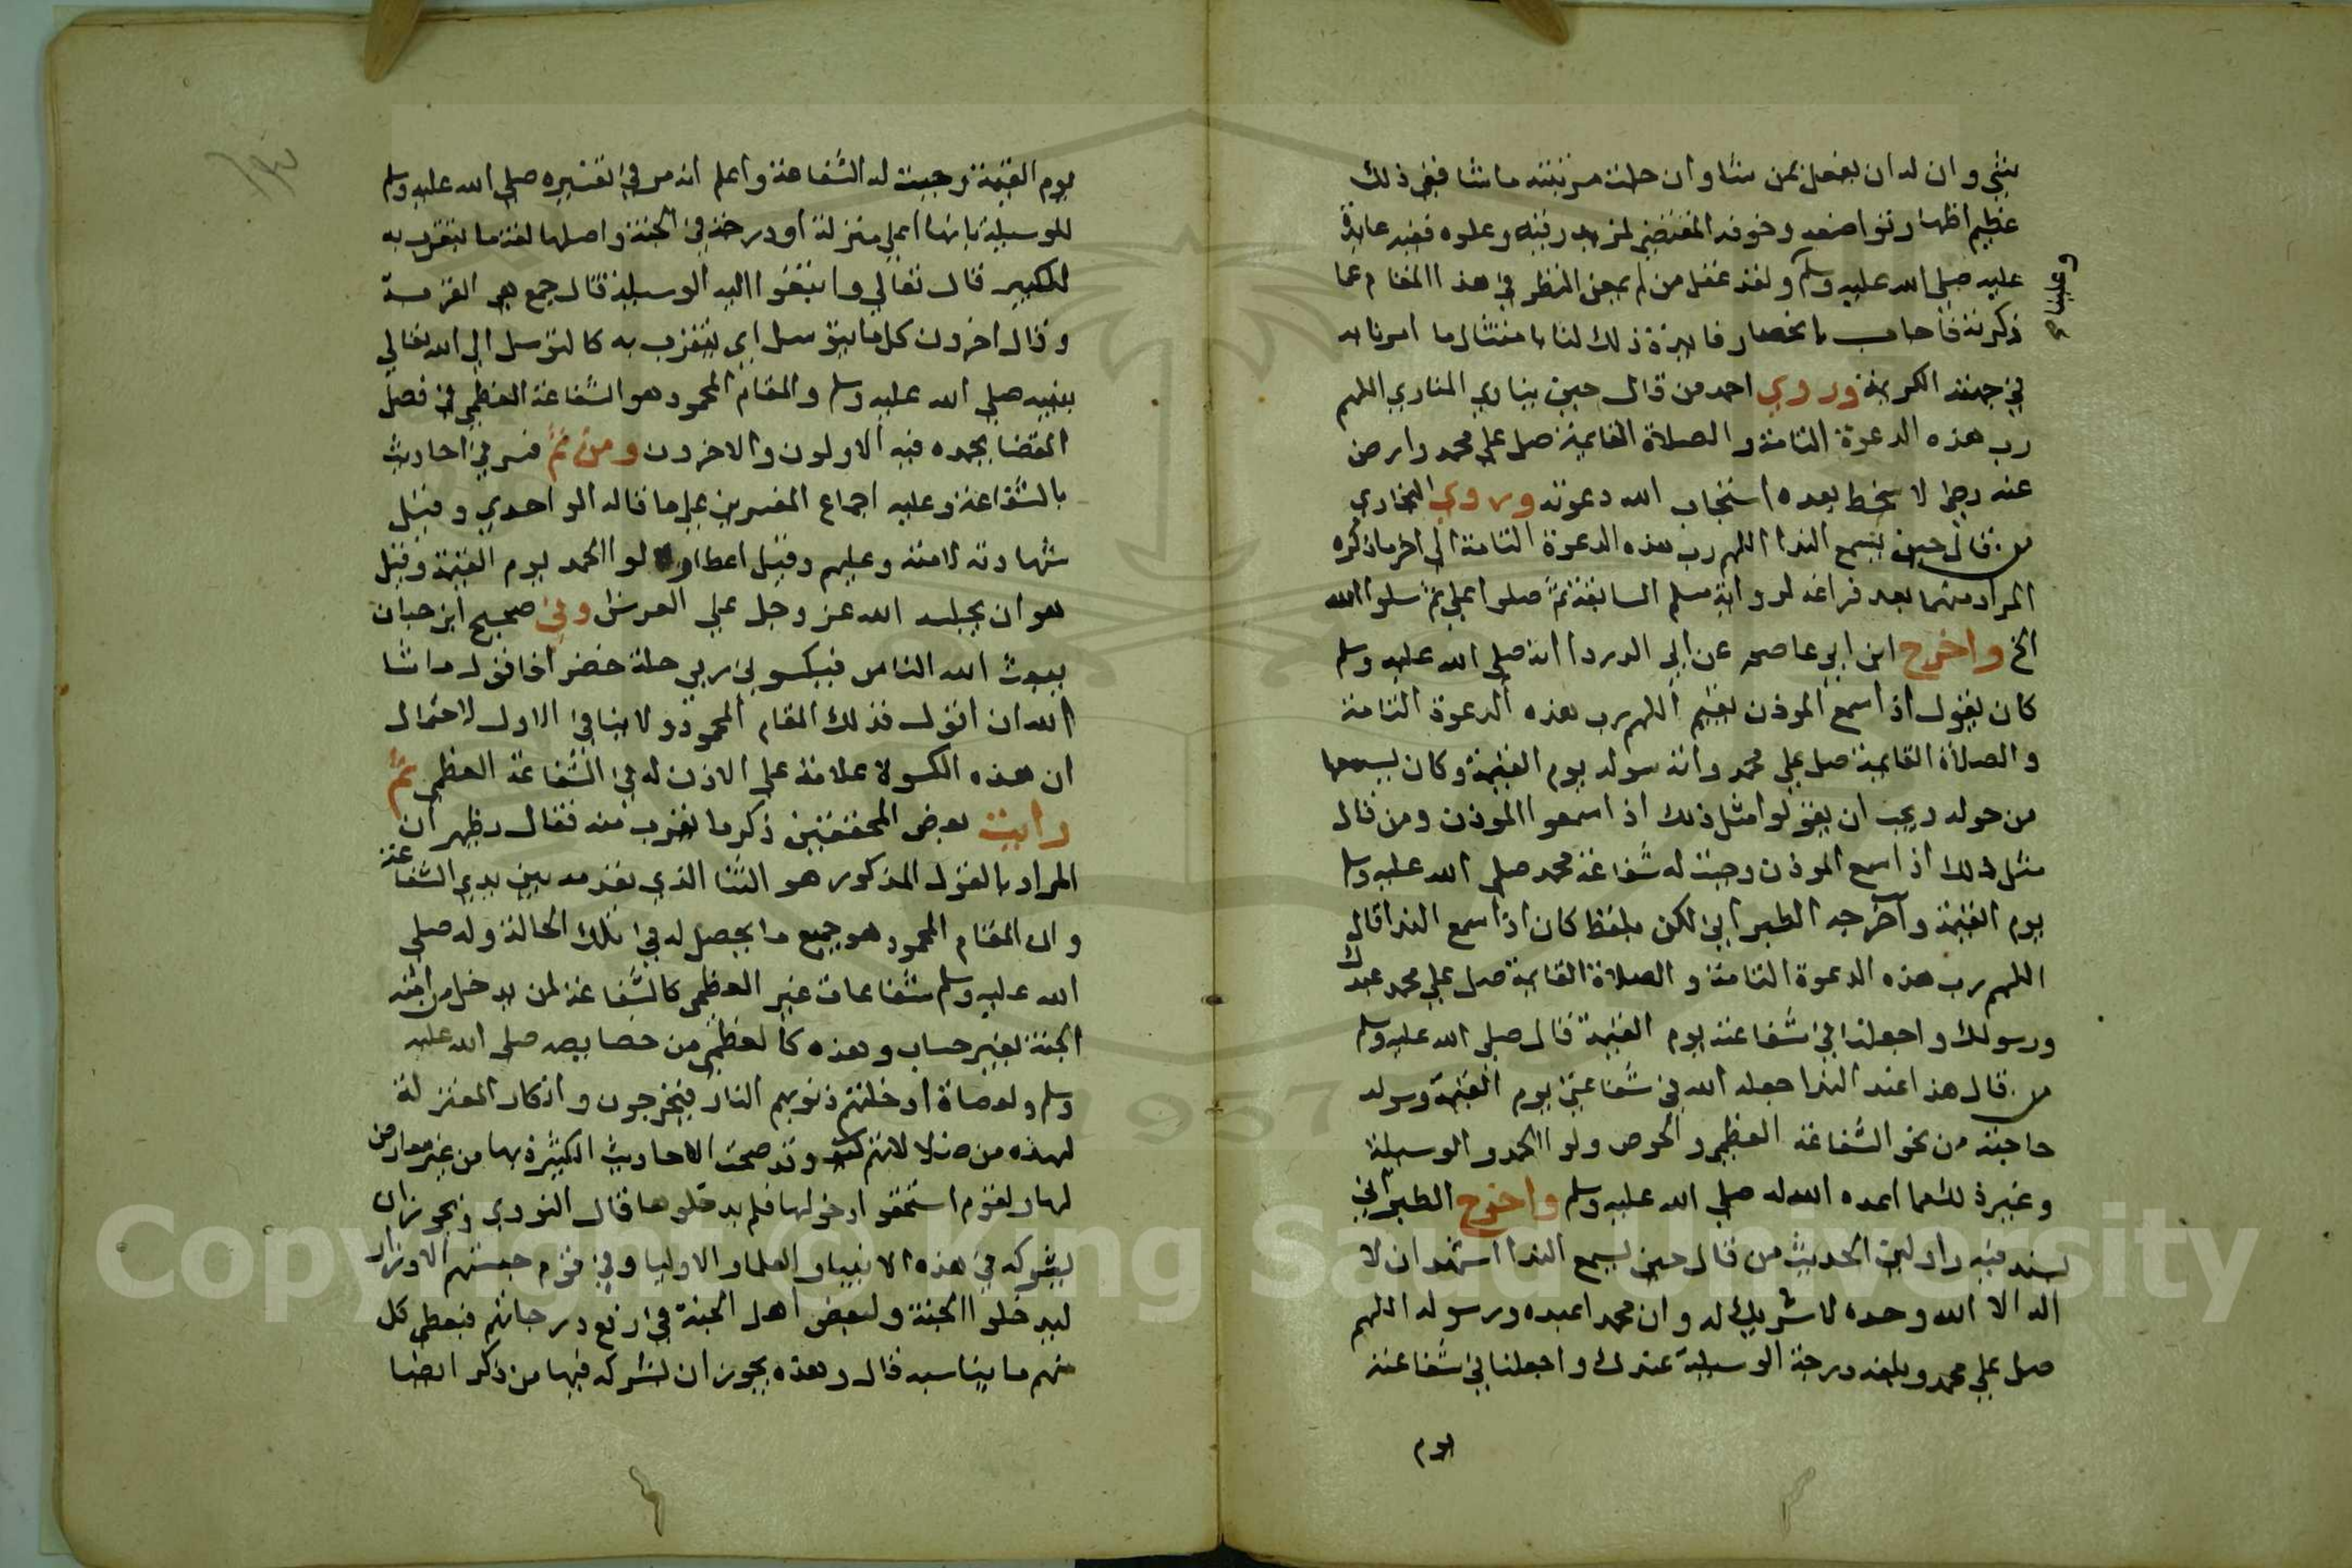 شي وان له ان يفعل بمن شا وان جلت مرتبته ما شا ففي ذلك
عظيم اظهار تواضعه وخوفه المقتضي لمزيد رفعته وعلوه ففيه عايدة
عليه صلى الله عليه وسلم ولقد غفل من لم يمعن النظر في هذا المقام عما
وعلينا صح
ذكرته فاجاب بانحصار فايدة ذلك لنا بامتثال ما امرنا به
في جهته الكريمة وروي احمد من قال حين ينادي المنادي اللهم
رب هذه الدعوة التامة والصلاة القايمة صل على محمد وارض
عنه رضا لا سخط بعده استجاب الله دعوته وروي البخاري
من قال حين يسمع الندا اللهم رب هذه الدعوة التامة الى اخر ما ذكره
المراد منهما بعد فراغه لرواية مسلم السابقة ثم صلوا علي ثم سلوا الله
الخ واخرج ابن ابي عاصم عن ابي الدردا انه صلى الله عليه وسلم
كان يقول اذا سمع الموذن يقيم اللهم رب هذه الدعوة التامة
والصلاة القايمة صل على محمد واته سوله يوم القيمة وكان يسمعها
من حوله ويحب ان يقولوا مثل ذلك اذا سمعوا الموذن ومن قال
مثل ذلك اذا سمع الموذن وجبت له شفاعة محمد صلى الله عليه وسلم
يوم القيمة واخرجه الطبراني لكن بلفظ كان اذا سمع الندا قال
اللهم رب هذه الدعوة التامة والصلاة القايمة صل على محمد عبدك
ورسولك واجعلنا في شفاعته يوم القيمة قال صلى الله عليه وسلم
من قال هذا عند الندا جعله الله في شفاعتي يوم القيمة وسوله
حاجته من نحو الشفاعة العظمى والحوض ولوا الحمد والوسيلة
وغيرة لك مما اعده الله له صلى الله عليه وسلم واخرج الطبراني
بسند فيه راو لين الحديث من قال حين يسمع الندا اشهد ان لا
اله الا الله وحده لا شريك له وان محمدا عبده ورسوله اللهم
صل على محمد وبلغه درجة الوسيلة عندك واجعلنا في شفاعته
يوم
يوم القيمة وجبت له الشفاعة واعلم انه مر في تفسيره صلى الله عليه وسلم
للوسيلة بانها اعلى منزلة او درجة في الجنة واصلها لغة ما يتقرب به
للكبير قال تعالى وابتغوا اليه الوسيلة قال جمع هي القربة
وقال اخرون كل ما يتوسل اي يتقرب به كالتوسل الى الله تعالى
بنبيه صلى الله عليه وسلم والمقام المحمود هو الشفاعة العظمى في فصل
القضا يحمده فيه الاولون والاخرون ومن ثم فسر في احاديث
بالشفاعة وعليه اجماع المفسرين على ما قاله الواحدي وقيل
شهادته لامته وعليهم وقيل اعطاوه لوا الحمد يوم القيمة وقيل
هو ان يجلسه الله عز وجل على العرش وفي صحيح ابن حبان
يبعث الله الناس فيكسوني ربي حلة خضرا فاقول ما شا
الله ان اقول فذلك المقام المحمود ولا ينافي الاول لاحتمال
ان هذه الكسوة علامة على الاذن له في الشفاعة العظمى ثم
رايت بعض المحققين ذكر ما يقرب منه فقال يظهر ان
المراد بالقول المذكور هو الثنا الذي يقدمه بين يدي الشفاعة
وان المقام المحمود هو جميع ما يحصل له في تلك الحالة وله صلى
الله عليه وسلم شفاعات غير العظمى كالشفاعة لمن يدخل من امته
الجنة بغير حساب وهذه كالعظمى من خصايصه صلى الله عليه
وسلم ولعصاة ادخلتهم ذنوبهم النار فيخرجون وانكار المعتزلة
لهذه من ضلالاتهم وقد صحت الاحاديث الكثيرة بها من غير معارض
لها ولقوم استحقوا دخولها فلم يدخلوها قال النووي ويجوز ان
يشركه في هذه الانبيا والعلما والاوليا وفي قوم حبستهم الاوزار
ليدخلوا الجنة ولبعض اهل الجنة في رفع درجاتهم فيعطى كل
منهم ما يناسبه قال وهذه يجوز ان يشركه فيها من ذكر ايضا